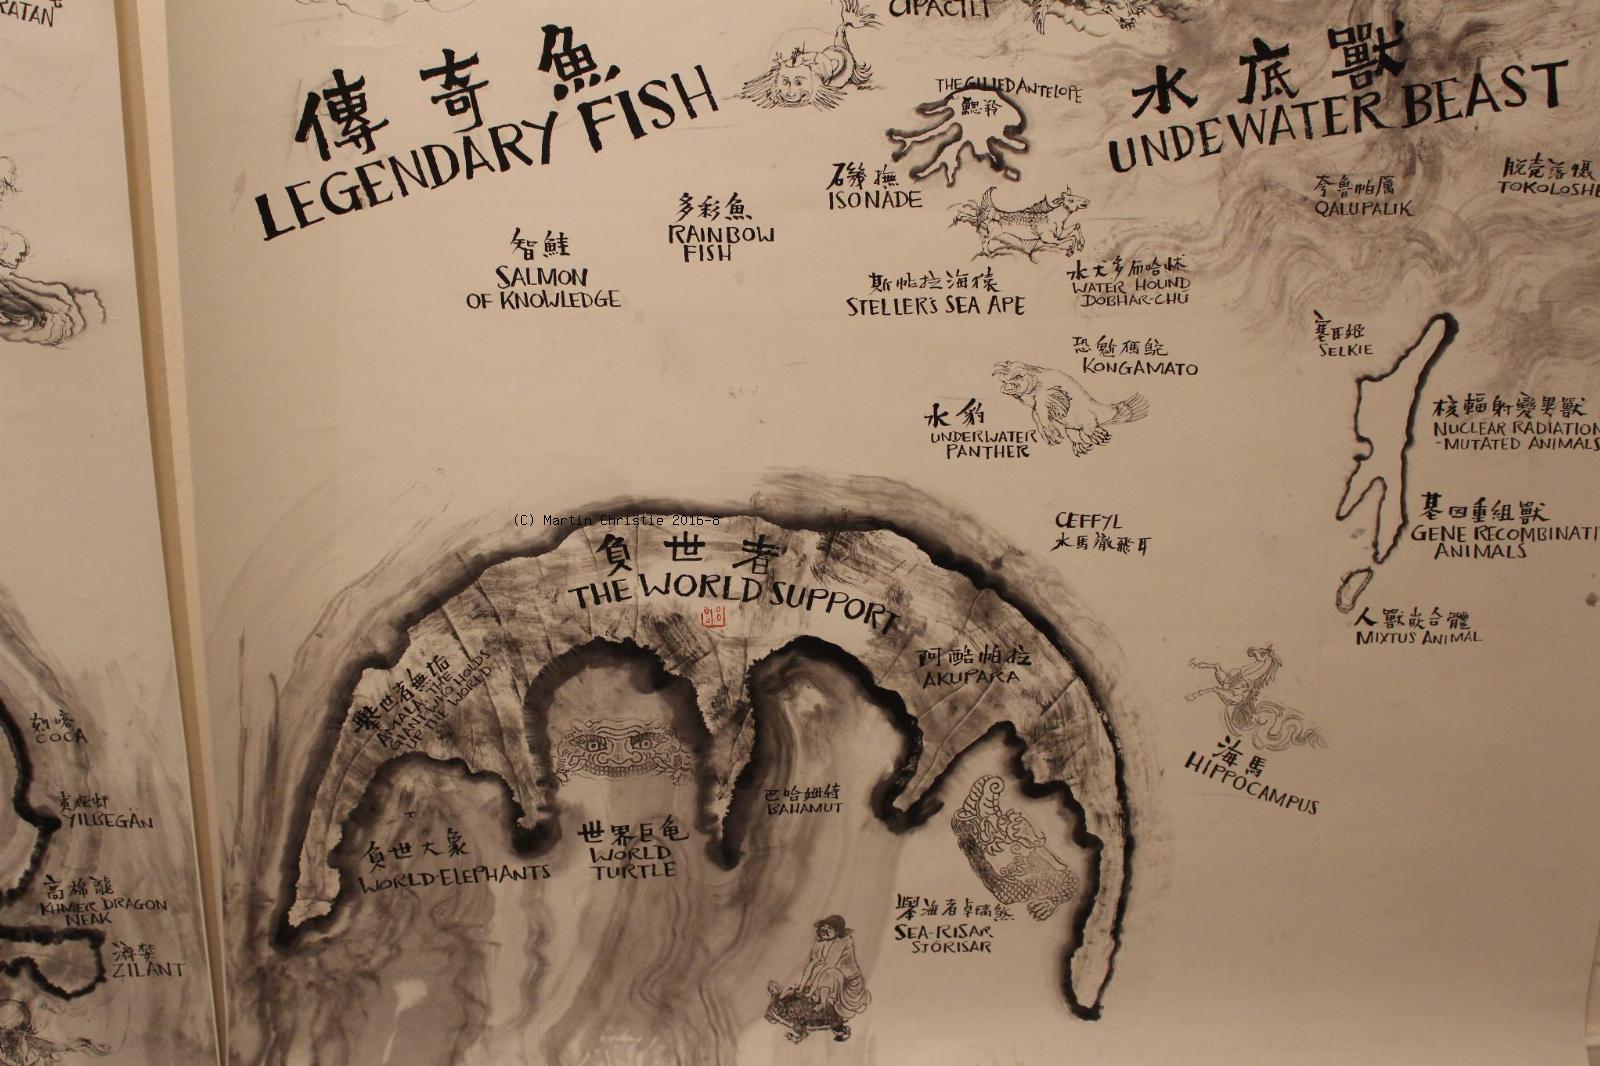 RATAN
CIPACTLI
傳奇魚
LEGENDARY FISH
THE GILLED ANTELOPE
鰓羚
水底獸
UNDEWATER BEAST
磯撫
ISONADE
多彩魚
RAINBOW
FISH
智鮭
SALMON
OF KNOWLEDGE
夸魯帕厲
QALUPALIK
TOKOLOSHE
斯帖拉海猿
STELLER'S SEA APE
水犬多布哈休
WATER HOUND
DOBHAR-CHU
塞耳姬
SELKIE
KONGAMATO
水豹
UNDERWATER
PANTHER
核輻射變異獸
NUCLEAR RADIATION
-MUTATED ANIMALS
基因重組獸
GENE RECOMBINATI
ANIMALS
CEFFYL
水馬澈飛耳
人獸嵌合體
MIXTUS ANIMAL
(C) Martin Christie 2016-8
負世者
THE WORLD SUPPORT
舉世者無垢
AMALA, THE
GIANT WHO HOLDS
UP THE WORLD
阿酷帕拉
AKUPARA
海馬
HIPPOCAMPUS
COCA
YILBEGÄN
巴哈姆特
BAHAMUT
負世大象
WORLD-ELEPHANTS
世界巨龟
WORLD
TURTLE
高棉龍
KHMER DRAGON
NEAK
SEA-RISAR
SJÓRISAR
ZILANT